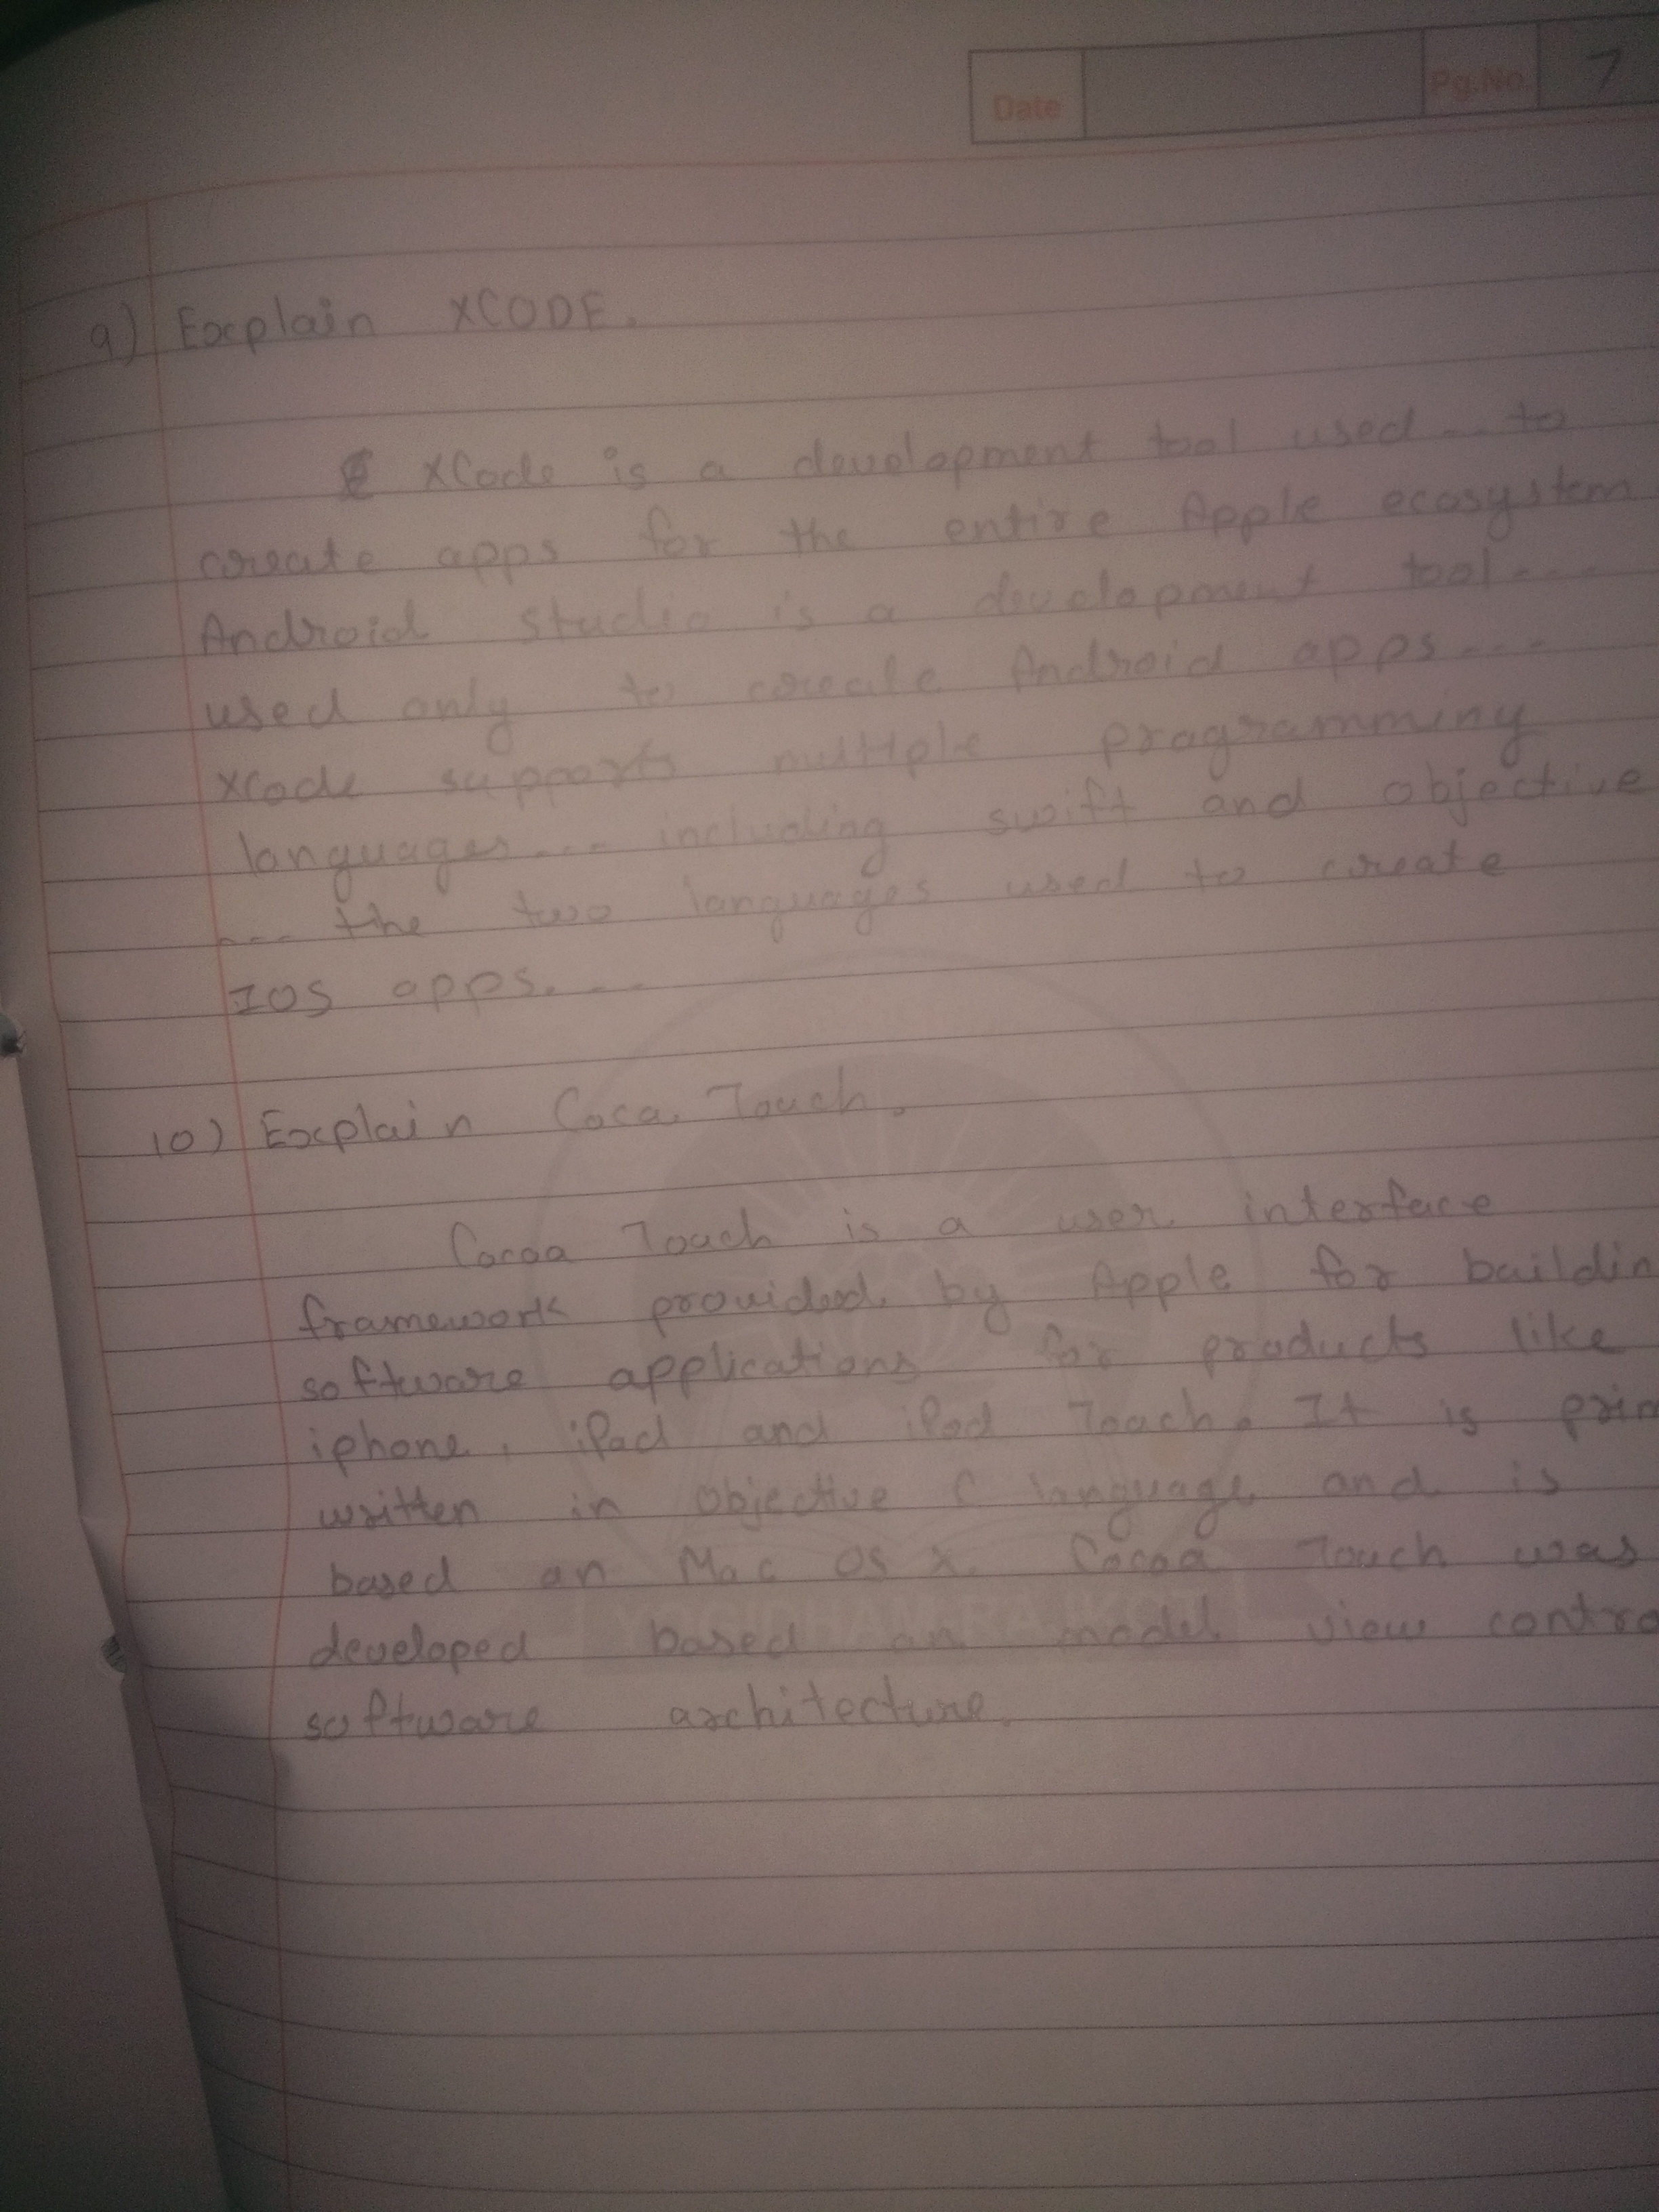 Date Pg.No. 7
9) Explain XCODE.
XCode is a development tool used -- to
create apps for the entire Apple ecosystem
Android studio is a development tool ---
used only to create Android apps ---
XCode supports multiple programming
languages --- including swift and objective
--- the two languages used to create
IOS apps. --
10) Explain Coca Touch.
Cocoa Touch is a user interface
framework provided by Apple for buildin
software applications for products like
iphone, iPad and iPod Touch. It is prim
written in Objective C language and is
based on Mac OS X. Cocoa Touch was
developed based on model view contro
software architecture.
YOGIDHAM, RAJKOT